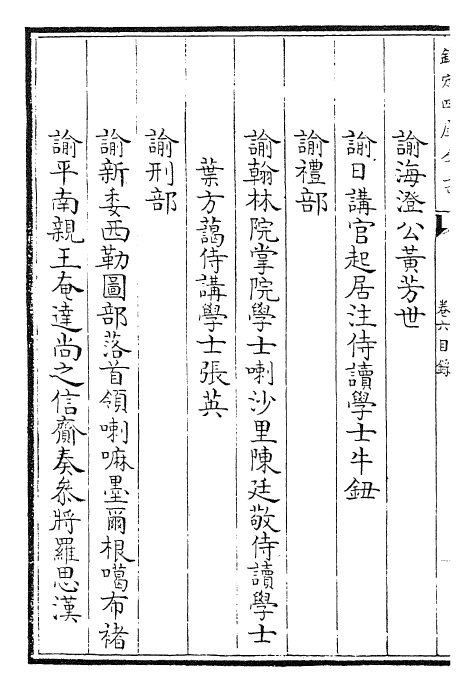 欽定四庫全書
卷六目錄
諭海澄公黃芳世
諭日講官起居注侍讀學士牛鈕
諭禮部
諭翰林院掌院學士喇沙里陳廷敬侍讀學士
葉方藹侍講學士張英
諭刑部
諭新委西勒圖部落首領喇嘛墨爾根噶布褚
諭平南親王奄達尚之信齎奏叅將羅思漢